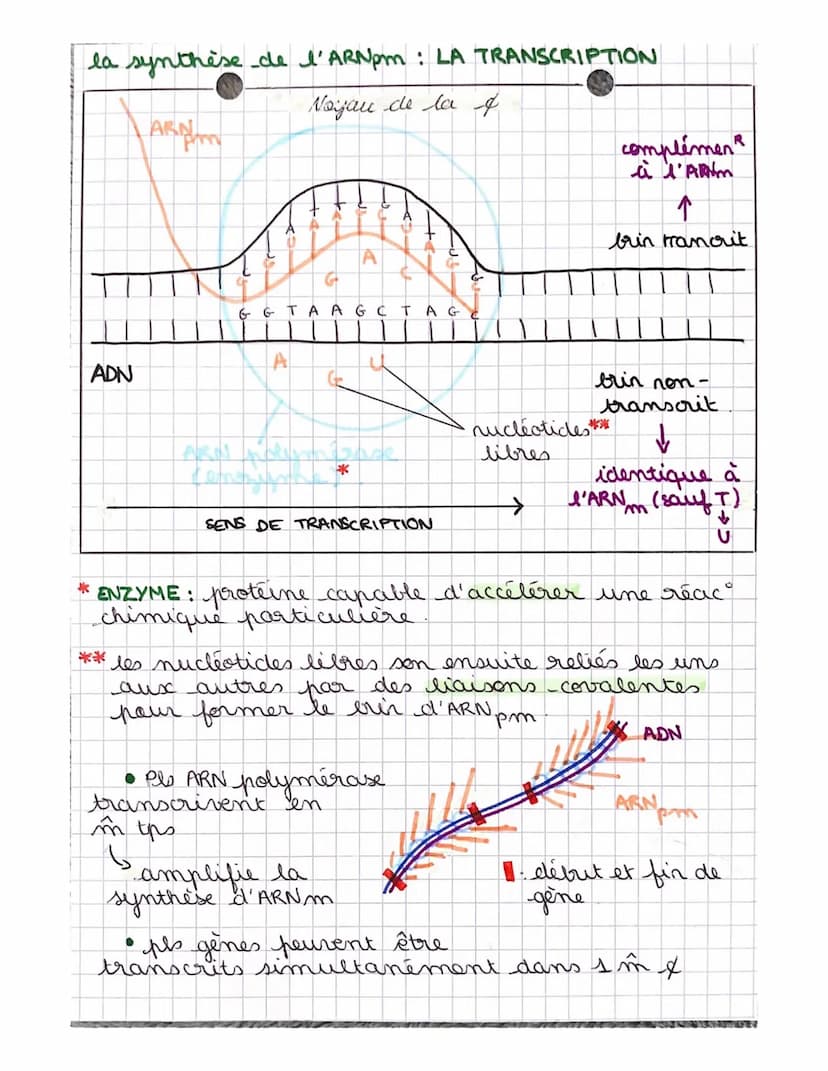 la synthèse de l'ARNpm : LA TRANSCRIPTION
Noyau de la ¢
ARNpm
complémenR
à l'ARNm
↑
brin transcrit
C C A T T C G A T C
G G U A A G C U A G C
A
G C
G G T A A G C T A G C
ADN
A G U
brin non-
transcrit.
nucléotides**
libres
↓
ARN polymérase
(enzyme) *
identique à
l'ARNm (sauf T)
↓
U
SENS DE TRANSCRIPTION
* ENZYME : protéine capable d'accélérer une réac°
chimique particulière.
** les nucléotides libres son ensuite reliés les uns
aux autres par des liaisons covalentes
pour former le brin d'ARNpm.
ADN
• Pls ARN polymérase
transcrivent en
m̂ tps
ARNpm
↳ amplifie la
synthèse d'ARNm
: début et fin de
gène
• pls gènes peuvent être
transcrits simultanément dans 1 m̂ ¢